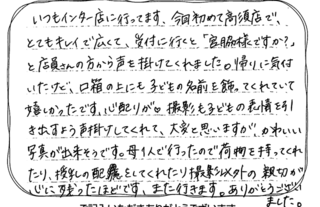 いつもインター店に行ってます、今回初めて高須店で、
とてもキレイで広くて、受付に行くと「宮脇様ですか？」
と店員さんの方から声を掛けてくれました。帰りに気付
いたけど、口箱の上にも子どもの名前を飾ってくれていて
嬉しかったです。心配りが♡ 撮影も子どもの表情を引
き出すよう声掛けしてくれて、大変と思いますが、かわいい
写真が出来そうです。母1人で行ったので荷物を持ってくれ
たり、授乳の配慮をしてくれたり撮影以外の親切が
心に残ったほどです、また行きます。ありがとうござい
ました。